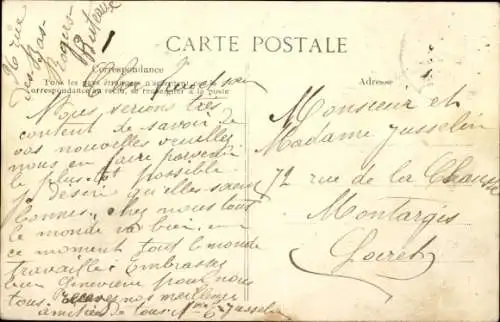 26 rue
des Bas
Rogers
Puteaux
CARTE POSTALE
Correspondance
Tous les pays étrangers n'acceptent pas la
correspondance au recto, se renseigner à la poste
Adresse
Nous serions très
content de savoir de
vos nouvelles veuillez
nous en faire parvenir
le plus tôt possible
Désire qu'elles soient
bonnes, chez nous tout
le monde va bien, en
ce moment tout le monde
travaille. Embrassez
bien Geneviève pour nous
tous. Recevez nos meilleures
amitiés de tous. Jusselin
Monsieur et
Madame Jusselin
72 rue de la Chaussée
Montargis
Loiret